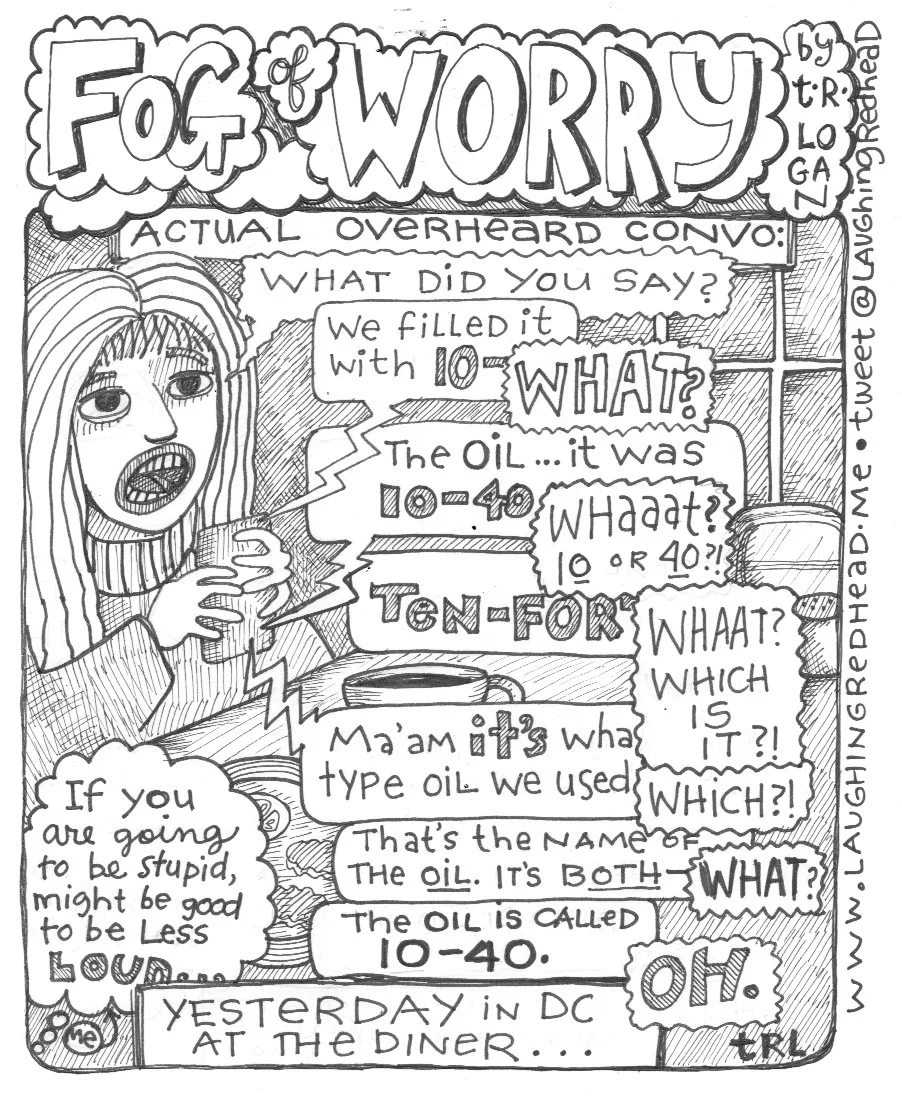 FoG of WORRY
by
t.R.
LO
GA
N
ACTUAL OVERHEARD CONVO:
WHAT DID YOU SAY?
We filled it
with 10-
WHAT?
The OIL... it was
10-40
WHaaat?
10 OR 40?!
Ten-FORT
WHAAT?
WHICH
IS
IT?!
Ma'am it's wha
type oil we used
WHiCH?!
That's the NAME OF
THE OIL. IT'S BOTH-
WHAT?
The OIL IS CALLeD
10-40.
OH.
If you
are going
to be stupid,
might be good
to be Less
LOUD...
Me
YESTERDAY iN DC
AT THE DINER...
tRL
www.LAUGHINGREDHEAD.Me • tweet @LAUGHingRedheaD